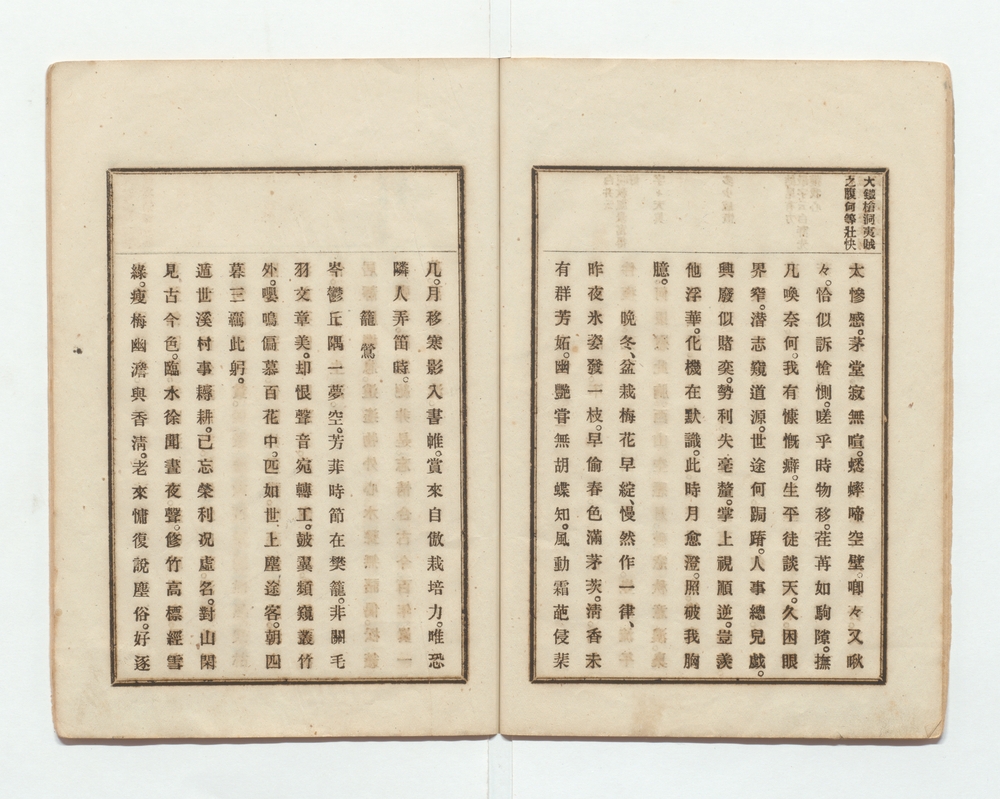 大鐵槍洞夷賊
之腹何等壯快
太慘感。茅堂寂無喧。蟋蟀啼空壁。唧々又啾
々。恰似訴愴惻。嗟乎時物移。荏苒如駒隙。撫
几喚奈何。我有慷慨癖。生平徒談天。久困眼
界窄。潜志窺道源。世途何跼蹐。人事總兒戯。
興廢似賭奕。勢利失毫釐。掌上視順逆。豈羨
他浮華。化機在默識。此時月愈澄。照破我胸
臆。
晩冬、盆栽梅花早綻、慢然作一律、
昨夜氷姿發一枝。早偷春色滿茅茨。淸香未
有群芳妬。幽艷甞無胡蝶知。風動霜葩侵棐
几。月移寒影入書帷。賞來自倣栽培力。唯恐
隣人弄笛時。
籠鶯
岑鬱丘隅一夢空。芳菲時節在樊籠。非關毛
羽文章美。却恨聲音宛轉工。皷翼頻窺叢竹
外。嚶鳴偏慕百花中。匹如世上塵途客。朝四
暮三羈此躬。
遁世溪村事耨耕。已忘榮利况虛名。對山閑
見古今色。臨水徐聞晝夜聲。修竹高標經雪
綠。瘦梅幽澹與香淸。老來慵復說塵俗。好逐